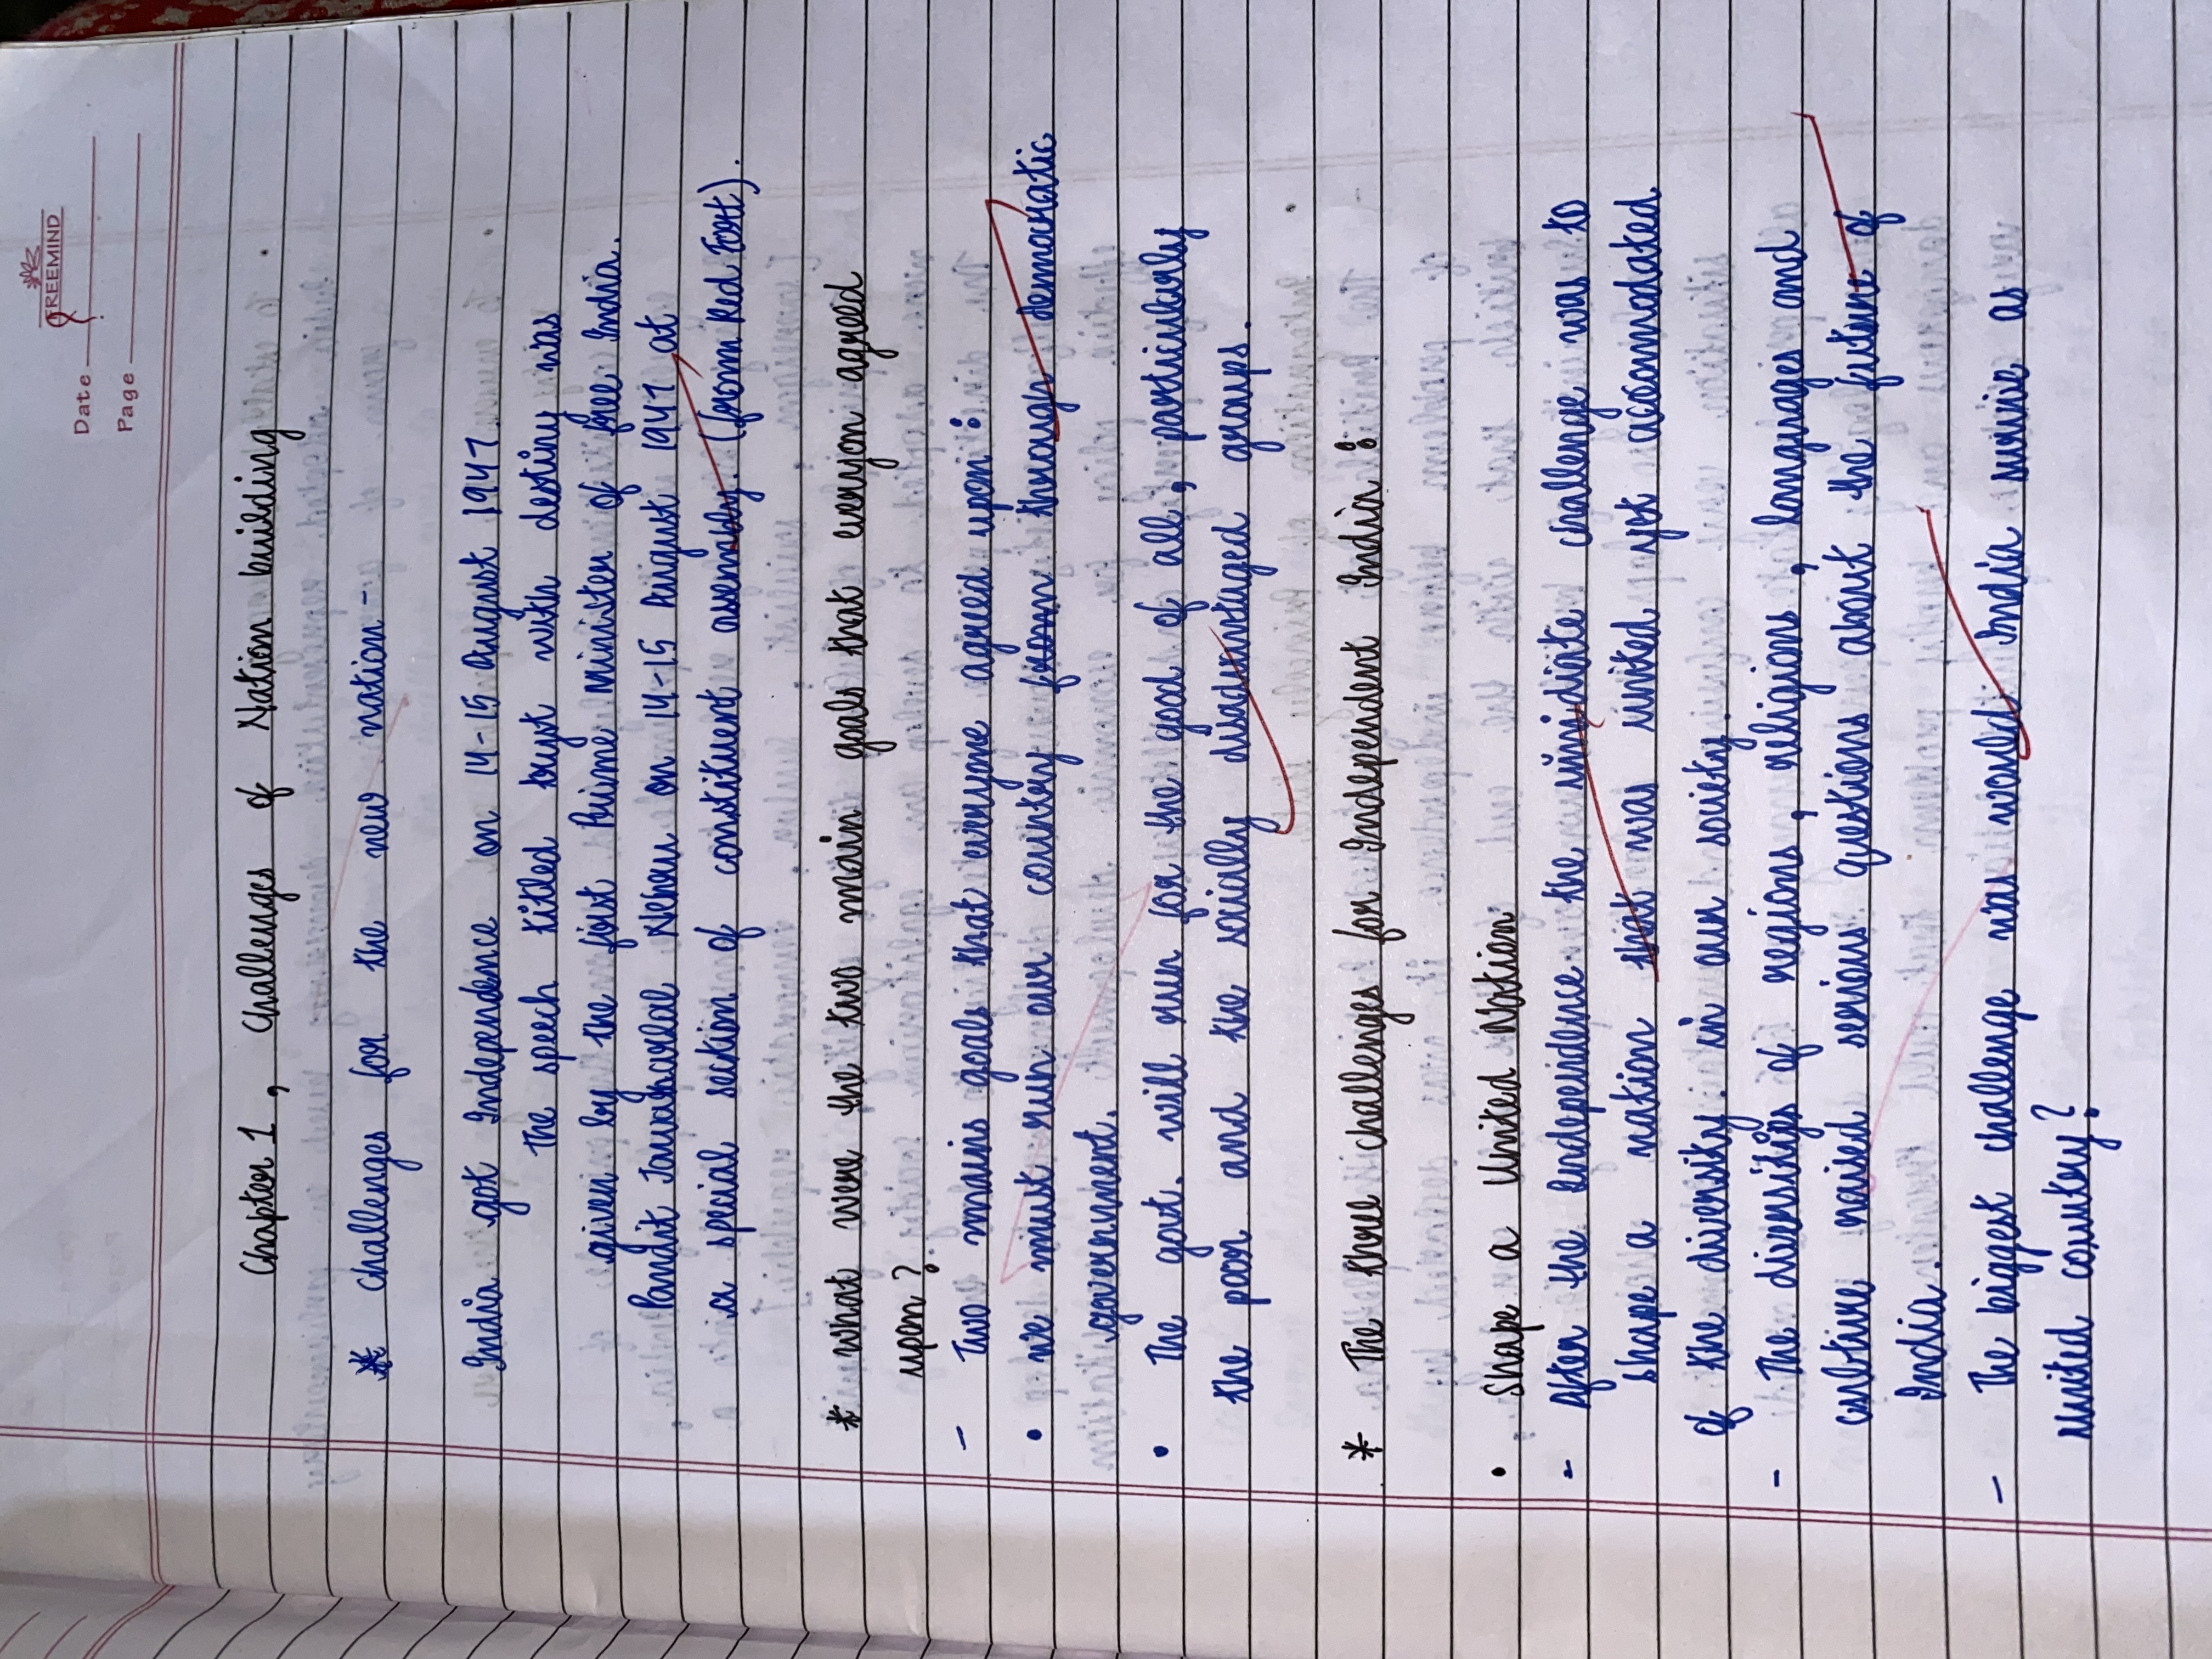 TREEMIND
Date
Page
Chapter 1, Challenges of Nation building
* Challenges for the new nation -
India got Independence on 14-15 August 1947.
The speech titled tryst with destiny was
given by the first Prime Minister of free India.
Pandit Jawaharlal Nehru on 14-15 August 1947 at
a special section of constituent assembly. (from Red Fort).
* What were the two main goals that everyon agreed
upon?
- Two mains goals that everyone agreed upon:
• we must run our country from through democratic
government.
• The govt. will run for the good of all, particularly
the poor and the socially disadvantaged groups.
* The three challenges for Independent India:
• Shape a United Nation
- After the independence the immidiate challenge was to
shape a nation that was united yet accommodated
of the diversity in our society.
- The diversities of regions, religions, languages and
culture raised serious questions about the future of
India.
- The biggest challenge was would India survive as
united country?